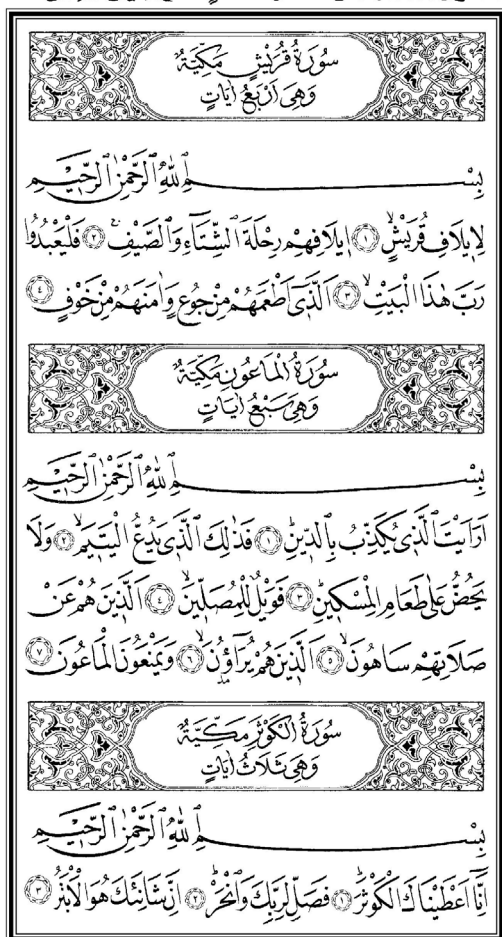 سُورَةُ قُرَيْشٍ مَكِّيَّةٌ
وَهِيَ اَرْبَعُ اٰيَاتٍ
بِسْمِ اللّٰهِ الرَّحْمٰنِ الرَّحِيمِ
لِإِيلَافِ قُرَيْشٍۙ ﴿١﴾ إِيلَافِهِمْ رِحْلَةَ الشِّتَٓاءِ وَالصَّيْفِۚ ﴿٢﴾ فَلْيَعْبُدُوا
رَبَّ هٰذَا الْبَيْتِۙ ﴿٣﴾ اَلَّذِٓي اَطْعَمَهُمْ مِنْ جُوعٍ وَاٰمَنَهُمْ مِنْ خَوْفٍ ﴿٤﴾
سُورَةُ الْمَاعُونِ مَكِّيَّةٌ
وَهِيَ سَبْعُ اٰيَاتٍ
بِسْمِ اللّٰهِ الرَّحْمٰنِ الرَّحِيمِ
اَرَاَيْتَ الَّذِي يُكَذِّبُ بِالدِّينِۜ ﴿١﴾ فَذٰلِكَ الَّذِي يَدُعُّ الْيَتِيمَۙ ﴿٢﴾ وَلَا
يَحُضُّ عَلٰى طَعَامِ الْمِسْكِينِۜ ﴿٣﴾ فَوَيْلٌ لِلْمُصَلِّينَۙ ﴿٤﴾ اَلَّذِينَ هُمْ عَنْ
صَلَاتِهِمْ سَاهُونَۙ ﴿٥﴾ اَلَّذِينَ هُمْ يُرَٓاؤُ۫نَۙ ﴿٦﴾ وَيَمْنَعُونَ الْمَاعُونَ ﴿٧﴾
سُورَةُ الْكَوْثَرِ مَكِّيَّةٌ
وَهِيَ ثَلَاثُ اٰيَاتٍ
بِسْمِ اللّٰهِ الرَّحْمٰنِ الرَّحِيمِ
اِنَّٓا اَعْطَيْنَاكَ الْكَوْثَرَۜ ﴿١﴾ فَصَلِّ لِرَبِّكَ وَانْحَرْۜ ﴿٢﴾ اِنَّ شَانِئَكَ هُوَ الْاَبْتَرُ ﴿٣﴾